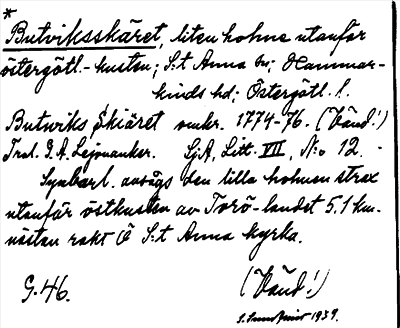 *
Butviksskäret, liten holme utanför
östergötl.-kusten; S:t Anna sn; Hammar-
kinds hd; Östergötl. l.
Butwiks Skiäret omkr. 1774-76. (Vänd!)
Trol. G. A. Lejonanker. GjA, Litt. VII, N:o 12.
Synbarl. avsågs den lilla holmen strax
utanför östkusten av Torö-landet 5.1 km.
nästan rakt Ö S:t Anna kyrka.
G. 46. (Vänd!)
1939.